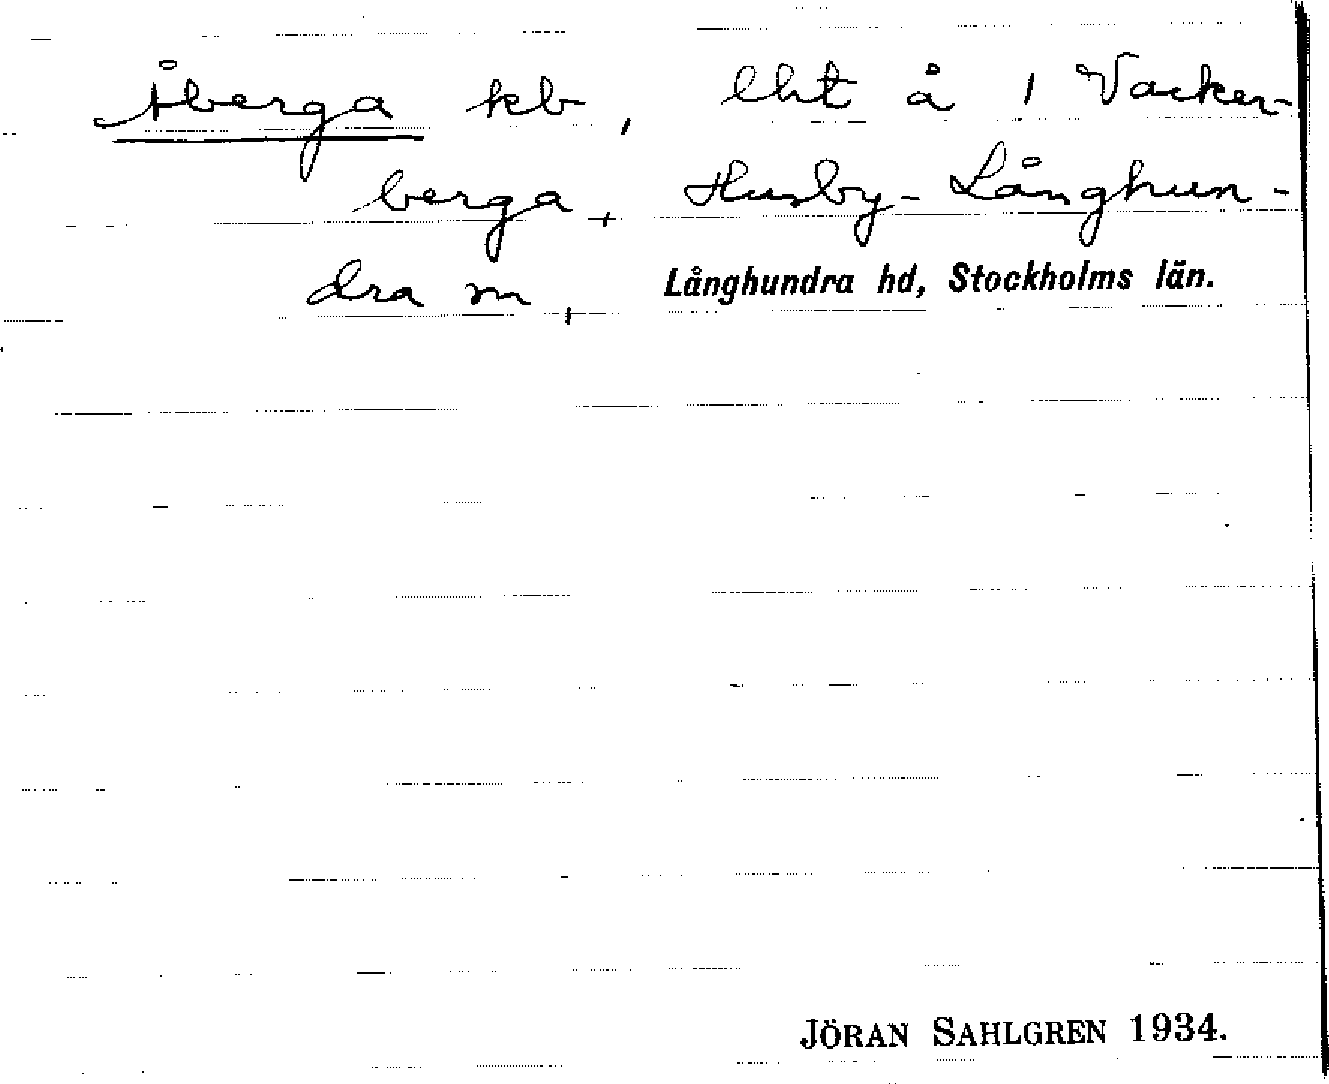 Åberga kb, lht å 1 Vacker-
berga, Husby-Långhun-
dra sn, Långhundra hd, Stockholms län.
JÖRAN SAHLGREN 1934.